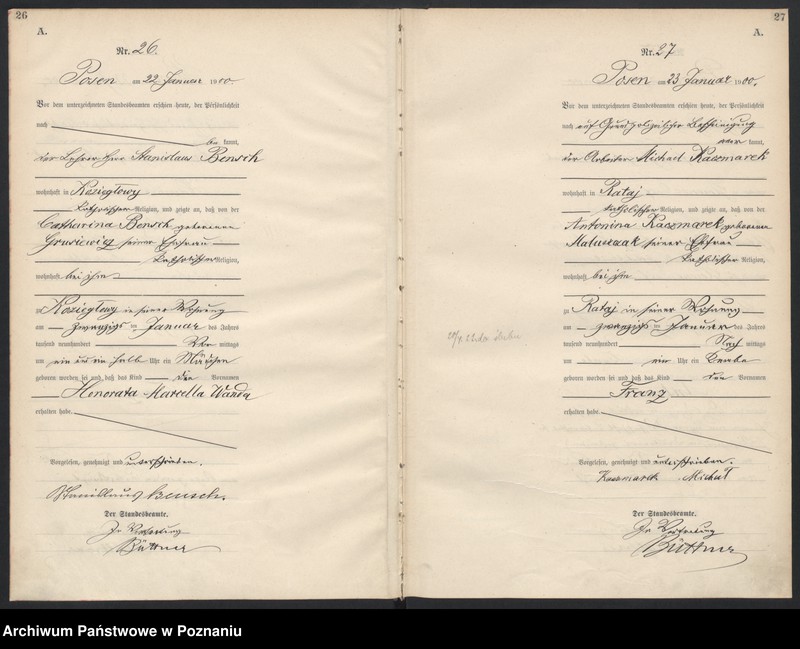 26
A.
Nr. 26.
Posen am 22 Januar 1900.
Vor dem unterzeichneten Standesbeamten erschien heute, der Persönlichkeit
nach
be kannt,
der Lehrer Herr Stanislaus Bensch
wohnhaft in Koziegłowy
katholischer Religion, und zeigte an, daß von der
Catharina Bensch geborenen
seiner Ehefrau
katholischer Religion,
wohnhaft bei ihm
zu Koziegłowy in seiner Wohnung
am zwanzigsten Januar des Jahres
tausend neunhundert Vor mittags
um ein ein halb Uhr ein Mädchen
geboren worden sei und daß das Kind die Vornamen
Honorata Marcella Wanda
erhalten habe.
Vorgelesen, genehmigt und unterschrieben.
Stanislaus Bensch.
Der Standesbeamte.
In Vertretung
Büttner
27
A.
Nr. 27
Posen am 23 Januar 1900.
Vor dem unterzeichneten Standesbeamten erschien heute, der Persönlichkeit
nach auf Grund polizeilicher Bescheinigung
kannt,
der Arbeiter Michael Kaczmarek
wohnhaft in Rataj
katholischer Religion, und zeigte an, daß von der
Antonina Kaczmarek geborenen
Matuszak seiner Ehefrau
katholischer Religion,
wohnhaft bei ihm
zu Rataj in seiner Wohnung
am zwanzigsten Januar des Jahres
tausend neunhundert Nach mittags
um ein Uhr ein Knabe
geboren worden sei und daß das Kind den Vornamen
Franz
erhalten habe.
Vorgelesen, genehmigt und unterschrieben.
Kaczmarek Michał
Der Standesbeamte.
In Vertretung
Büttner
Archiwum Państwowe w Poznaniu